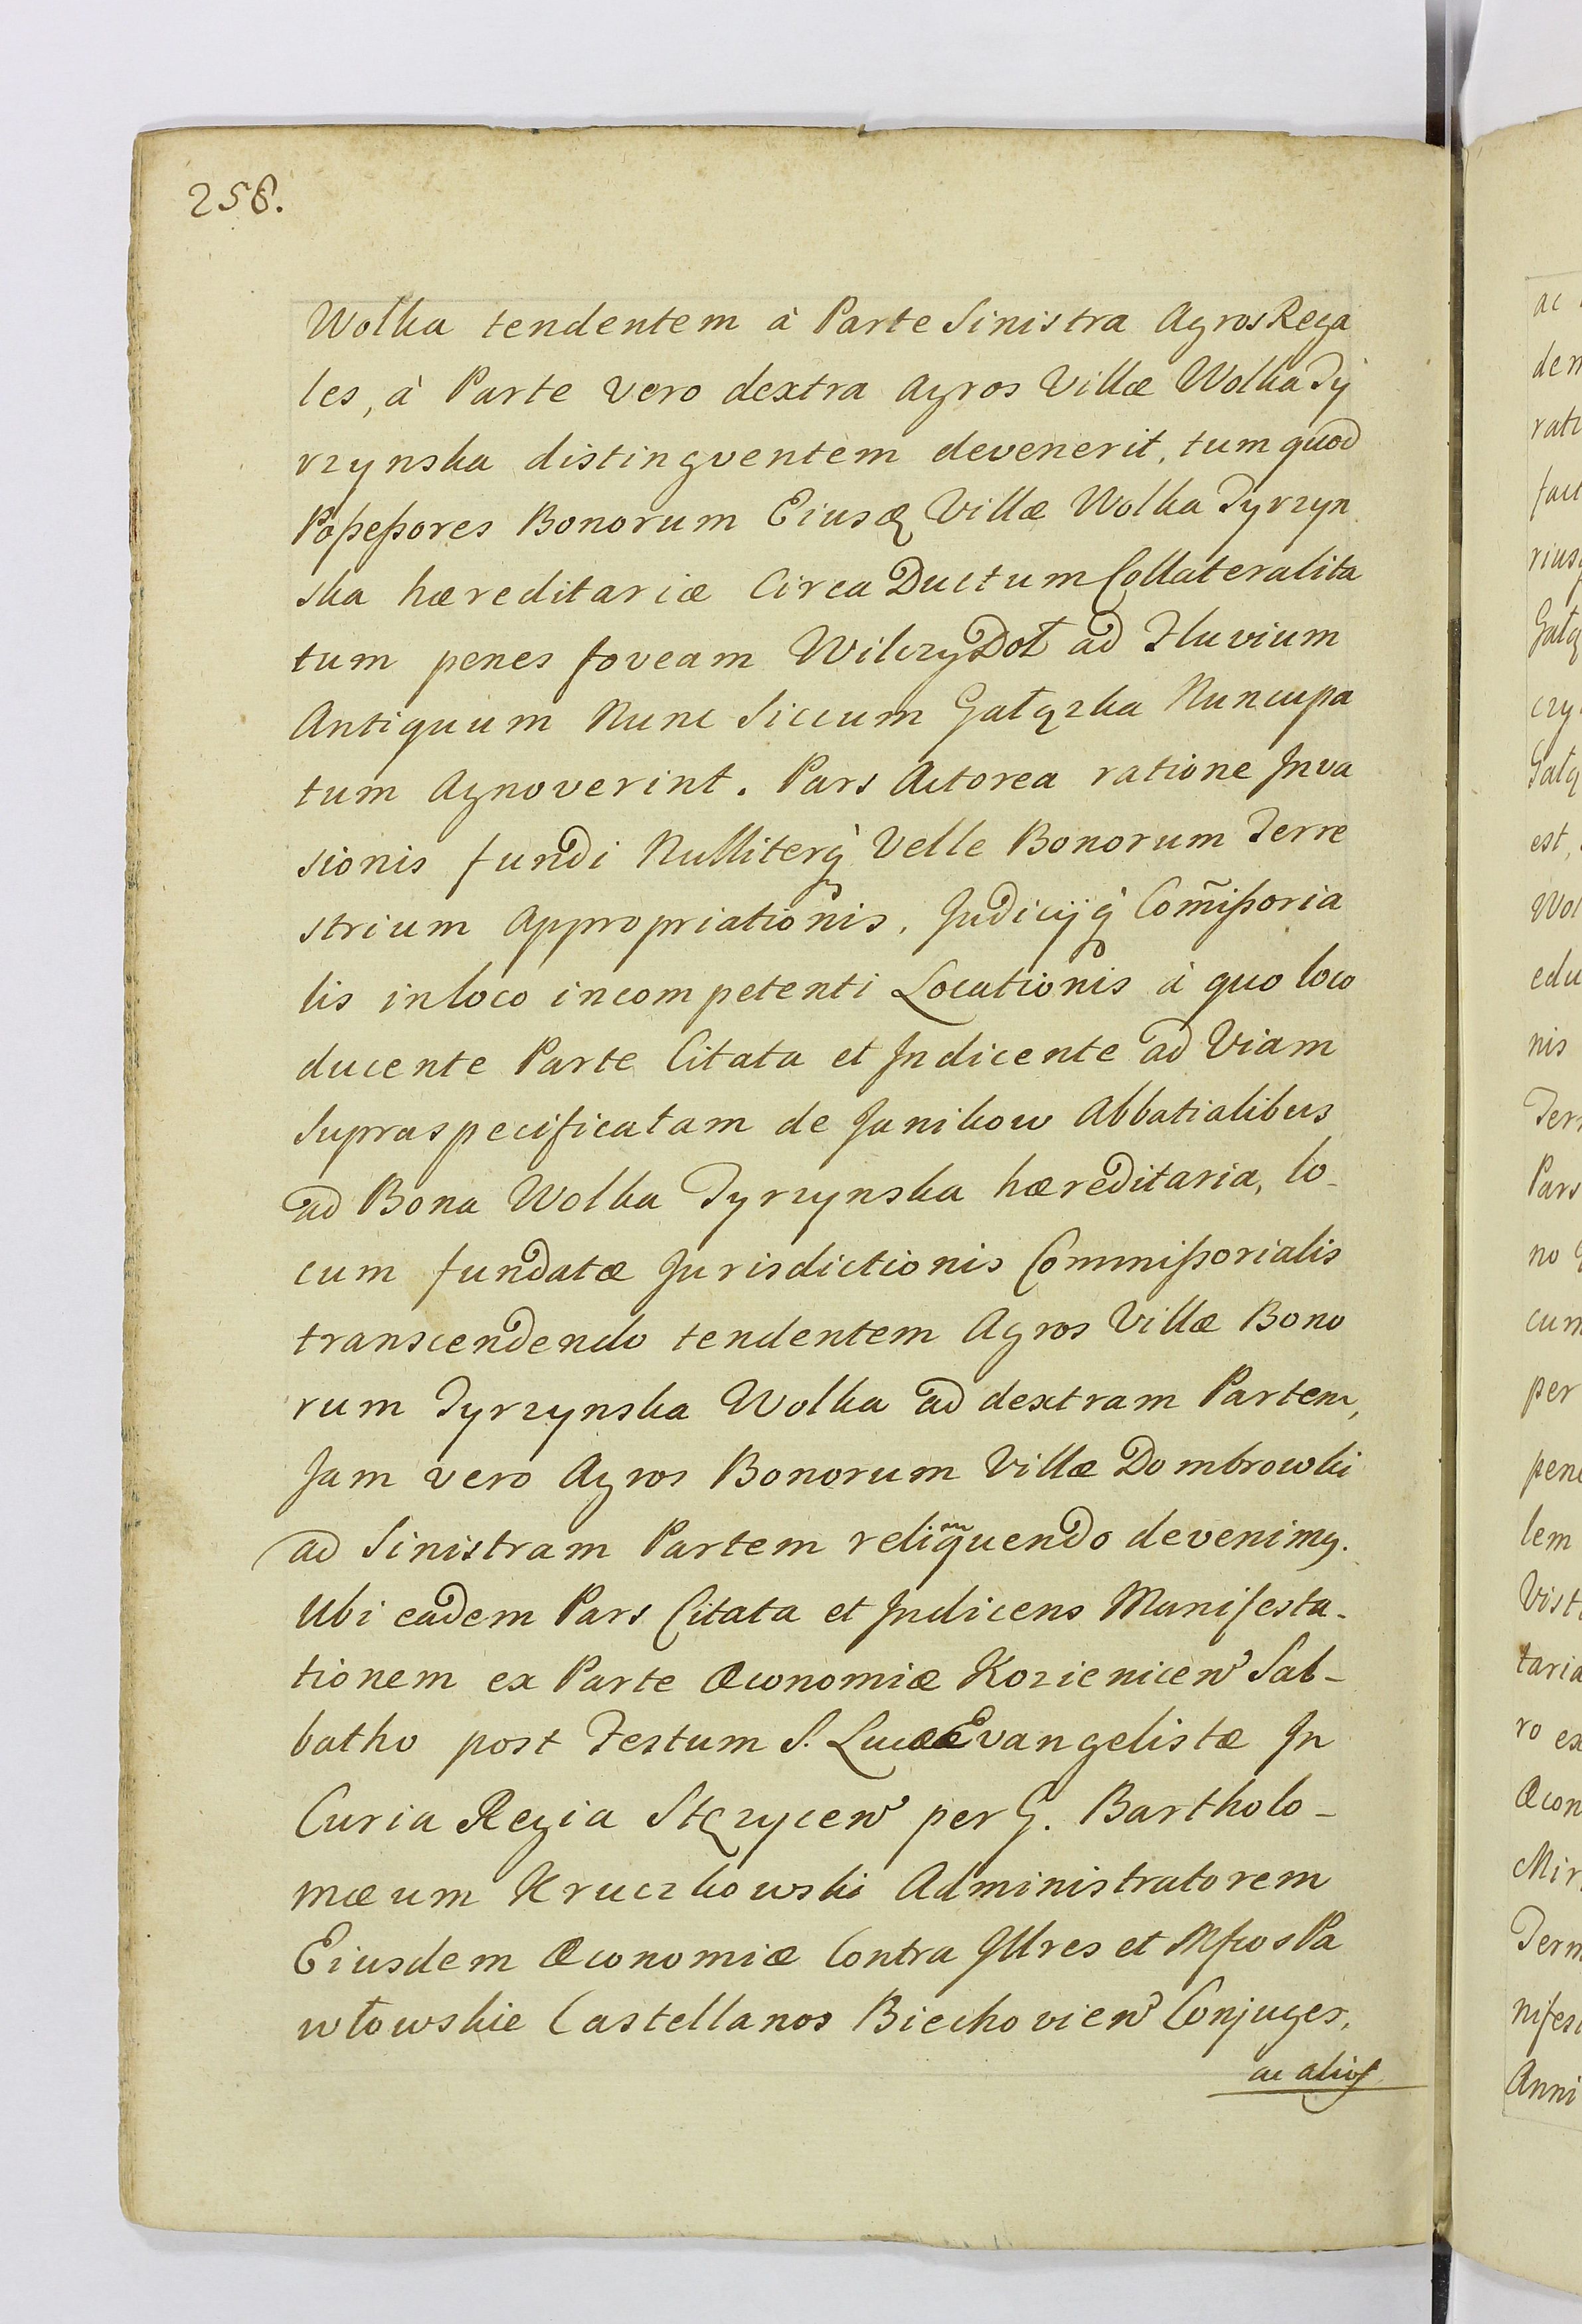 258.
Wolka tendentem à Parte Sinistra Agros Rega
les, à Parte vero dextra Agros Villæ Wolka Ty
rzynska distingventem devenerit, tum quod
Poßeßores Bonorum Eiusdẽ Villæ Wolka Tyrzyn
ska hæreditariæ Circa Ductum Collateralita
tum penes foveam Wilczy Doł ad Fluvium
Antiquum Nunc Siccum Gałązka Nuncupa
tum Agnoverint. Pars Actorea ratione Inva
sionis fundi Nulliterq̀ Velle Bonorum Terre
strium Appropriationis, Judicijq̀ Com̃ißoria
lis in loco incompetenti Locationis à quo loco
ducente Parte Citata et Indicente ad Viam
Supraspecificatam de Janikow Abbatialibus
ad Bona Wolka Tyrzynska hæreditaria, lo-
cum fundatæ Jurisdictionis Commißorialis
transcendendo tendentem Agros Villæ Bono
rum Tyrzynska Wolka ad dextram Partem,
Jam vero Agros Bonorum Villæ Dombrowki
ad Sinistram Partem reliñquendo devenimꝰ.
Ubi eadem Pars Citata et Indicens Manifesta-
tionem ex Parte Œconomiæ Kozienicen̓ Sab-
batho post Festum S. Lucæ Evangelistæ In
Curia Regia Stęzycen̓ per G. Bartholo-
mæum Kruczkowski Administratorem
Eiusdem Œconomiæ Contra Illres et Mfcos Pa
włowskie Castellanos Biechovien̓ Conjuges,
ac alios
ac
dem
rati
fact
rius
Gałą
czy
Gałą
est,
Wol
edu
nis
Ter
Pars
no
cum
per
pene
lem
Vist
taria
ro ex
Œcon
Mir
Term
nifes
Anni